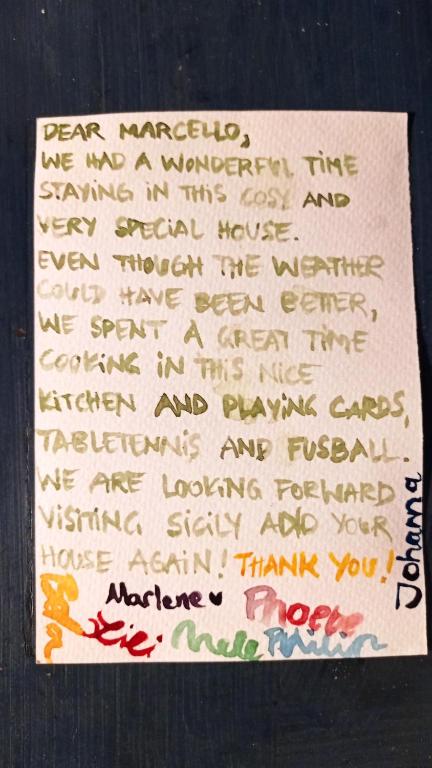 DEAR MARCELLO,
WE HAD A WONDERFUL TIME
STAYING IN THIS COSY AND
VERY SPECIAL HOUSE.
EVEN THOUGH THE WEATHER
COULD HAVE BEEN BETTER,
WE SPENT A GREAT TIME
COOKING IN THIS NICE
KITCHEN AND PLAYING CARDS,
TABLETENNIS AND FUSBALL.
WE ARE LOOKING FORWARD
VISITING SICILY AND YOUR
HOUSE AGAIN! THANK YOU!
Marlene Phoebe
Philipp
Johanna